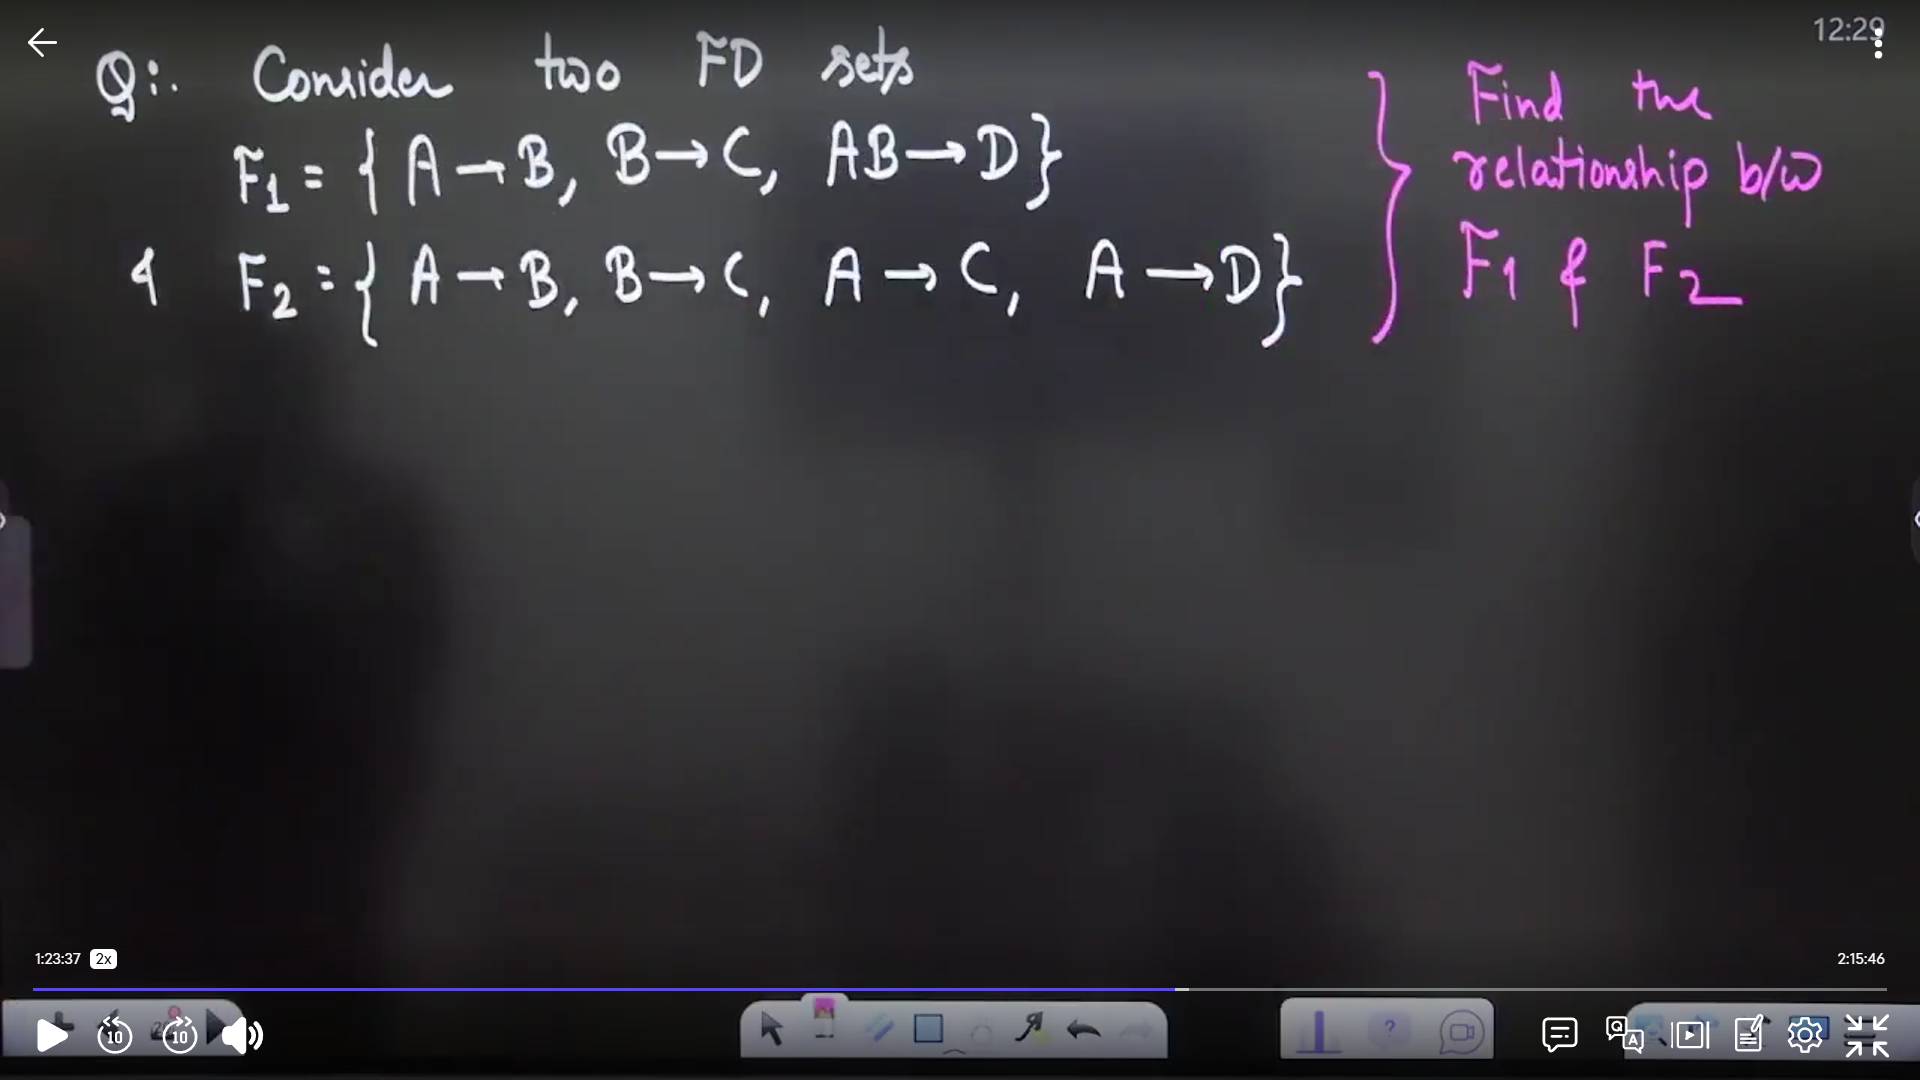 12:29
Q:. Consider two FD sets
F1 = { A → B, B → C, AB → D}
& F2 = { A → B, B → C, A → C, A → D}
Find the
relationship b/w
F1 & F2
1:23:37 2x
2:15:46
10 10
?
Q A